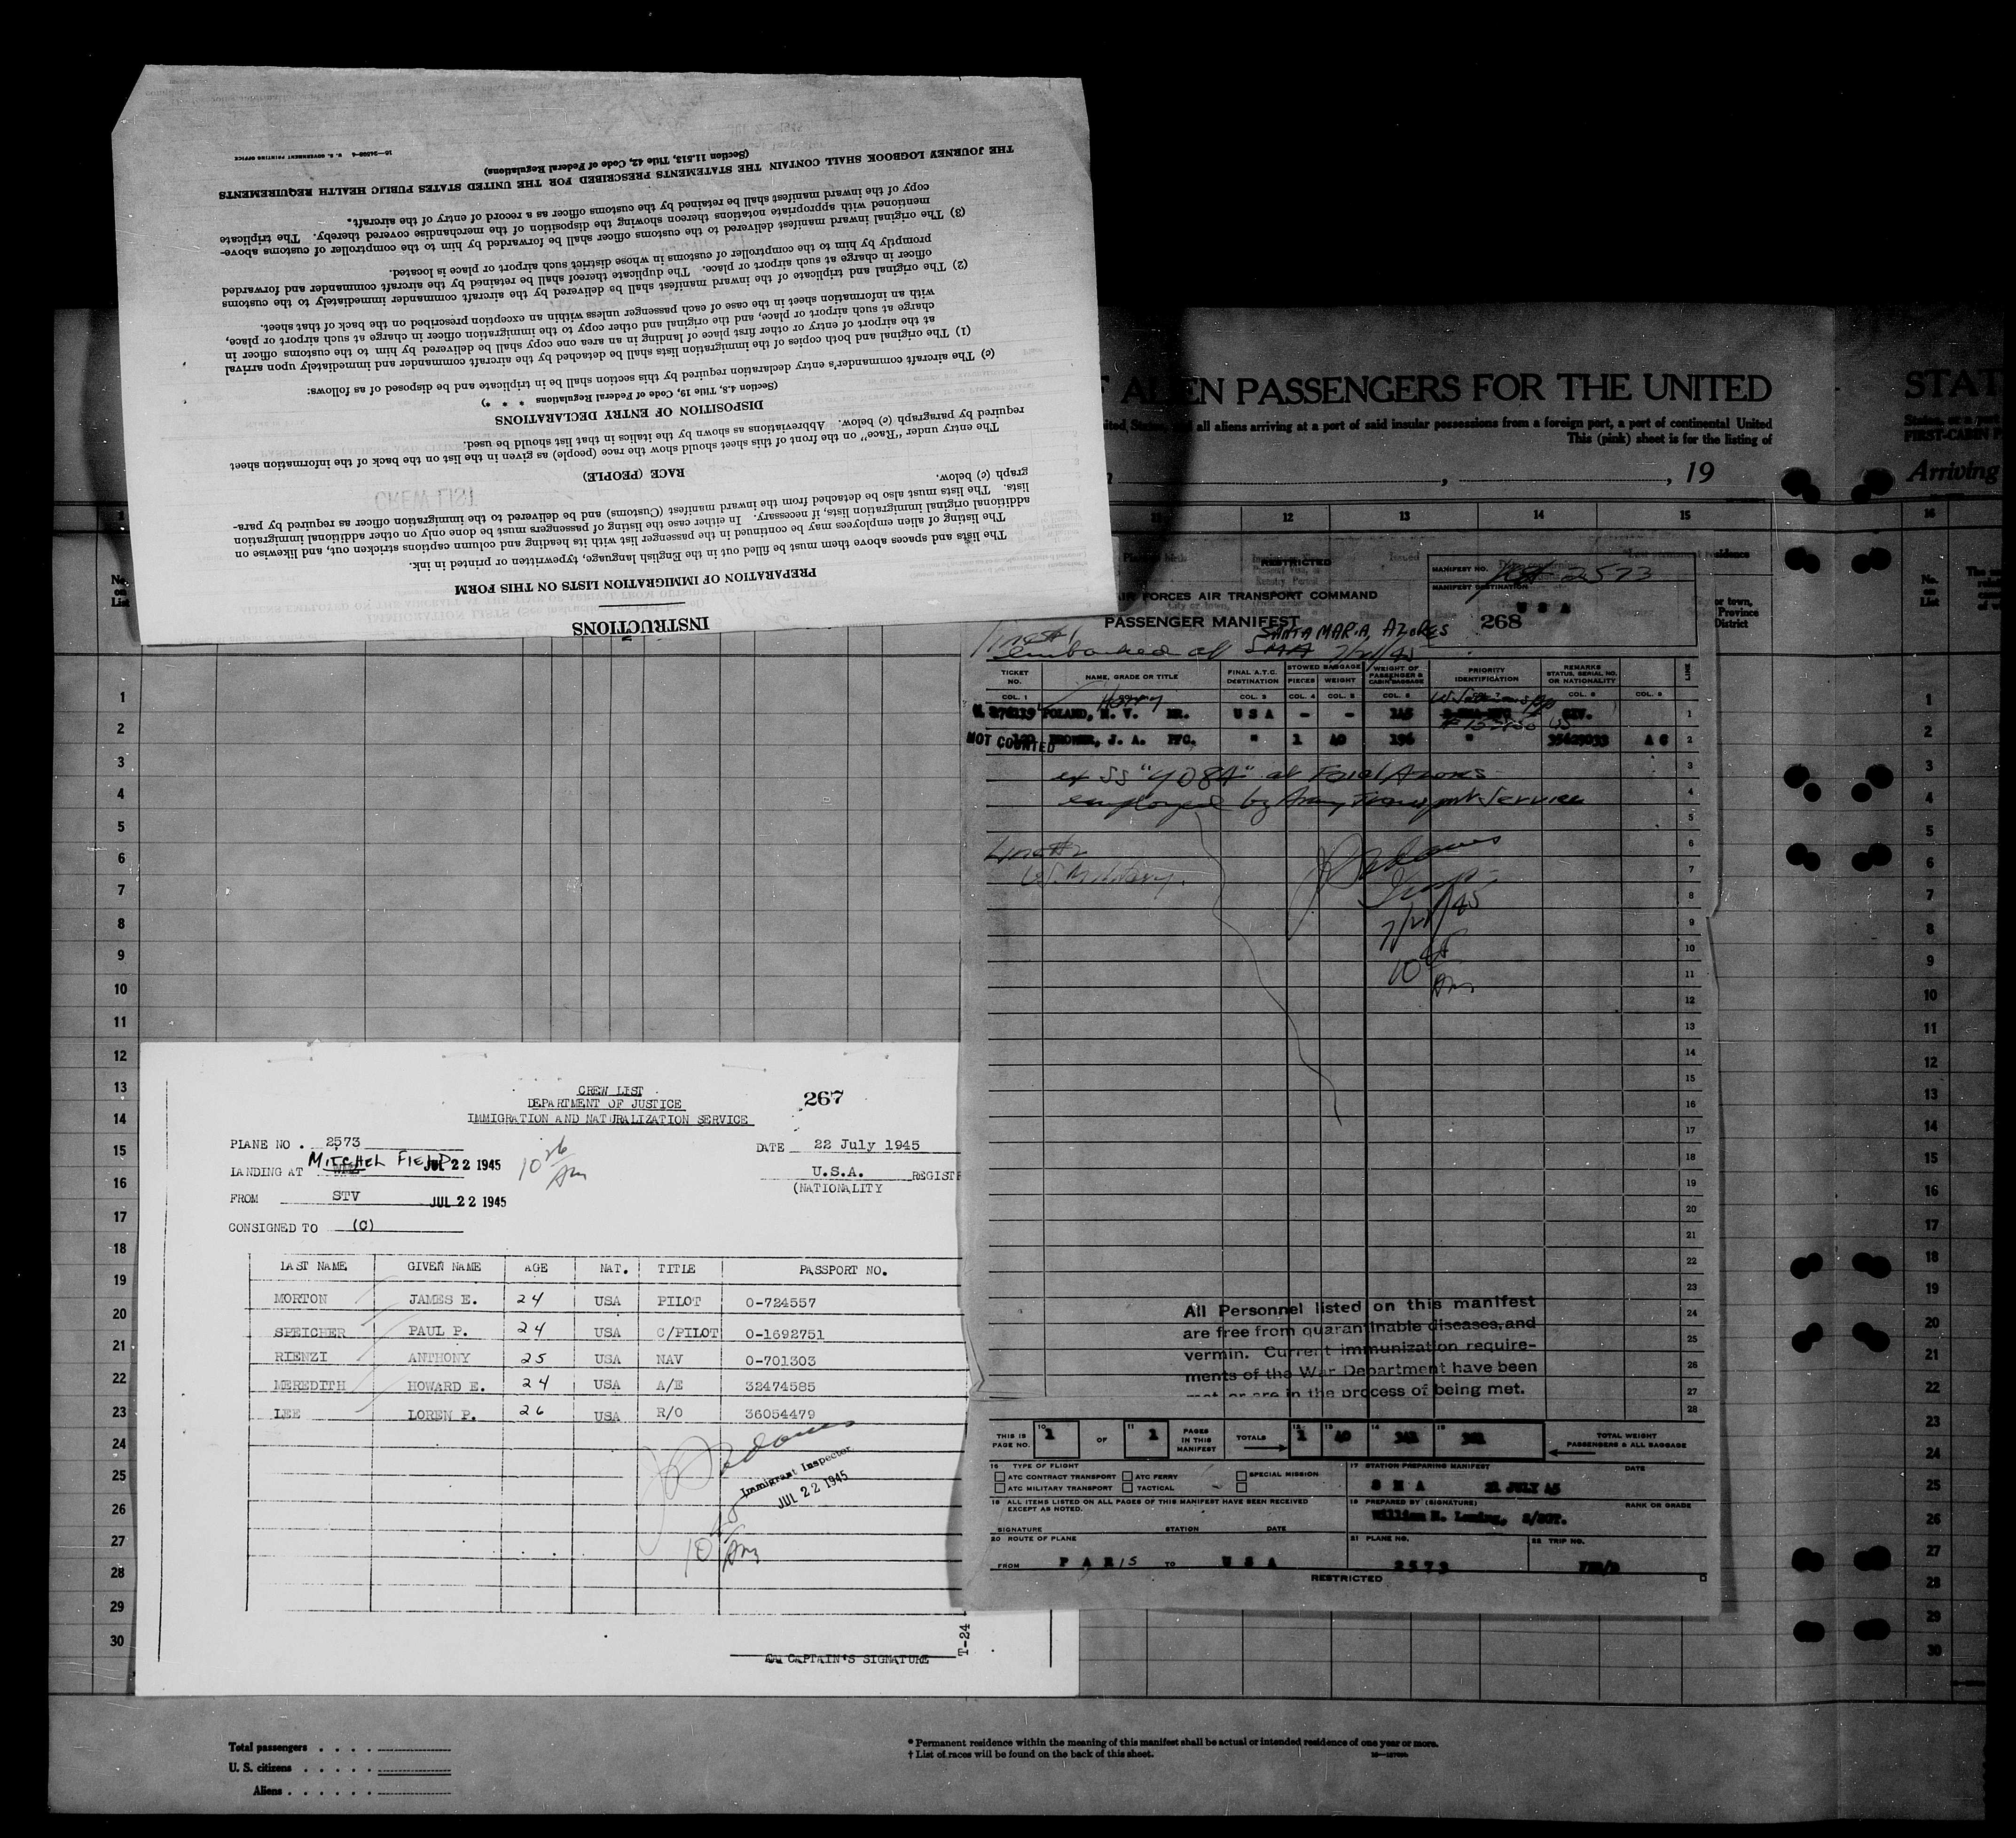 INSTRUCTIONS
PREPARATION OF IMMIGRATION LISTS ON THIS FORM
The lists and spaces above them must be filled out in the English language, typewritten or printed in ink.
The listing of alien employees may be continued in the passenger list with its heading and column captions stricken out, and likewise on
additional original immigration lists, if necessary. In either case the listing of passengers must be done only on other additional immigration
lists. The lists must also be detached from the inward manifest (Customs) and be delivered to the immigration officer as required by para-
graph (c) below.
RACE (PEOPLE)
The entry under "Race" on the front of this sheet should show the race (people) as given in the list on the back of the information sheet
required by paragraph (c) below. Abbreviations as shown by the italics in that list should be used.
DISPOSITION OF ENTRY DECLARATIONS
(Section 4.8, Title 19, Code of Federal Regulations * * *)
(c) The aircraft commander's entry declaration required by this section shall be in triplicate and be disposed of as follows:
(1) The original and both copies of the immigration lists shall be detached by the aircraft commander and immediately upon arrival
at the airport of entry or other first place of landing in an area one copy shall be delivered by him to the customs officer in
charge at such airport or place, and the original and other copy to the immigration officer in charge at such airport or place,
with an information sheet in the case of each passenger unless within an exception prescribed on the back of that sheet.
(2) The original and triplicate of the inward manifest shall be delivered by the aircraft commander immediately to the customs
officer in charge at such airport or place. The duplicate thereof shall be retained by the aircraft commander and forwarded
promptly by him to the comptroller of customs in whose district such airport or place is located.
(3) The original inward manifest delivered to the customs officer shall be forwarded by him to the comptroller of customs above-
mentioned with appropriate notations thereon showing the disposition of the merchandise covered thereby. The triplicate
copy of the inward manifest shall be retained by the customs officer as a record of entry of the aircraft.
THE JOURNEY LOGBOOK SHALL CONTAIN THE STATEMENTS PRESCRIBED FOR THE UNITED STATES PUBLIC HEALTH REQUIREMENTS
(Section 11.513, Title 42, Code of Federal Regulations)
U. S. GOVERNMENT PRINTING OFFICE
ALIEN PASSENGERS FOR THE UNITED
ited States, and all aliens arriving at a port of said insular possessions from a foreign port, a port of continental United
This (pink) sheet is for the listing of
, , 19
STAT
FIRST-CABIN P
Arriving
11 12 13 14 15 16
No. on List
RESTRICTED
MANIFEST NO. 2573
MANIFEST DESTINATION
U S A
268
AIR FORCES AIR TRANSPORT COMMAND
PASSENGER MANIFEST
Line #1
SANTA MARIA, AZORES
Embarked at SMA 7/21/45
TICKET NO. NAME, GRADE OR TITLE FINAL A.T.C. DESTINATION STOWED BAGGAGE PIECES WEIGHT WEIGHT OF PASSENGER & CABIN BAGGAGE PRIORITY IDENTIFICATION REMARKS STATUS, SERIAL NO. OR NATIONALITY LINE
COL. 1 COL. 3 COL. 4 COL. 5 COL. 6 COL. 8 COL. 9
Harry
POLAND, H. V. MR. U S A - - 145 CIV. 1
NOT COUNTED BROWER, J. A. PFC. " 1 40 196 " 35629033 A C 2
ex SS "YODA" at Faial Azores
employed by Army Transport Service
Line #2
US Military.
J Adams
Insp
7/22/45
10 AM
All Personnel listed on this manifest
are free from quarantinable diseases, and
vermin. Current immunization require-
ments of the War Department have been
met or are in the process of being met.
THIS IS PAGE NO. 1 OF 1 PAGES IN THIS MANIFEST TOTALS 1 40 341 381 TOTAL WEIGHT PASSENGERS & ALL BAGGAGE
16 TYPE OF FLIGHT
ATC CONTRACT TRANSPORT ATC FERRY SPECIAL MISSION
ATC MILITARY TRANSPORT TACTICAL
17 STATION PREPARING MANIFEST DATE
S M A 21 JULY 45
18 ALL ITEMS LISTED ON ALL PAGES OF THIS MANIFEST HAVE BEEN RECEIVED EXCEPT AS NOTED.
SIGNATURE STATION DATE
19 PREPARED BY (SIGNATURE) RANK OR GRADE
William H. S/SGT.
20 ROUTE OF PLANE
FROM PARIS TO U S A
21 PLANE NO. 2573
22 TRIP NO.
RESTRICTED
CREW LIST
DEPARTMENT OF JUSTICE
IMMIGRATION AND NATURALIZATION SERVICE
267
PLANE NO. 2573
DATE 22 July 1945
LANDING AT MITCHEL FIELD JUL 22 1945
10 26 Am
U.S.A. REGISTR
(NATIONALITY
FROM STV JUL 22 1945
CONSIGNED TO (C)
LAST NAME GIVEN NAME AGE NAT. TITLE PASSPORT NO.
MORTON JAMES E. 24 USA PILOT 0-724557
SPEICHER PAUL P. 24 USA C/PILOT 0-1692751
RIENZI ANTHONY 25 USA NAV 0-701303
MEREDITH HOWARD E. 24 USA A/E 32474585
LEE LOREN P. 26 USA R/O 36054479
J Adams
Immigrant Inspector
JUL 22 1945
10 Am
CAPTAIN'S SIGNATURE
T-24
Total passengers
U. S. citizens
Aliens
* Permanent residence within the meaning of this manifest shall be actual or intended residence of one year or more.
† List of races will be found on the back of this sheet.